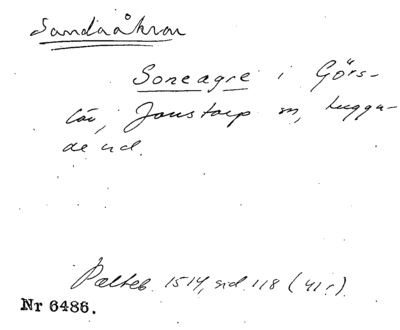 Sandaåkrar
Soneagre i Görs-
löv, Jonstorp sn, Luggu-
de hd.
Palteb. 1514, sid. 118 (41r).
Nr 6486.